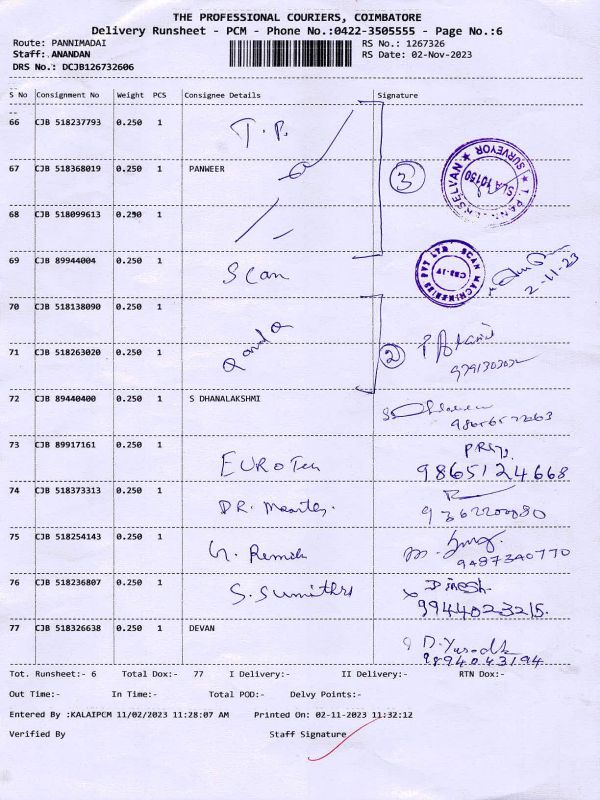 THE PROFESSIONAL COURIERS, COIMBATORE
Delivery Runsheet - PCM - Phone No.:0422-3505555 - Page No.:6
Route: PANNIMADAI RS No.: 1267326
Staff: ANANDAN RS Date: 02-Nov-2023
DRS No.: DCJB126732606
S No Consignment No Weight PCS Consignee Details Signature
66 CJB 518237793 0.250 1 T.P.
67 CJB 518368019 0.250 1 PANWEER 3
SURVEYOR SLA 10150
68 CJB 518099613 0.250 1
69 CJB 89944004 0.250 1 Scan SCAN MACHINERIES PVT LTD. CBE-IV 2-11-23
70 CJB 518138090 0.250 1
71 CJB 518263020 0.250 1 2
72 CJB 89440400 0.250 1 S DHANALAKSHMI
73 CJB 89917161 0.250 1 EURO Tech 9865124668
74 CJB 518373313 0.250 1 DR.
75 CJB 518254143 0.250 1 9487340770
76 CJB 518236807 0.250 1 S. Sumithra Dinesh
9944023215.
77 CJB 518326638 0.250 1 DEVAN D. Yasodha
9894043194
Tot. Runsheet:- 6 Total Dox:- 77 I Delivery:- II Delivery:- RTN Dox:-
Out Time:- In Time:- Total POD:- Delvy Points:-
Entered By :KALAIPCM 11/02/2023 11:28:07 AM Printed On: 02-11-2023 11:32:12
Verified By Staff Signature